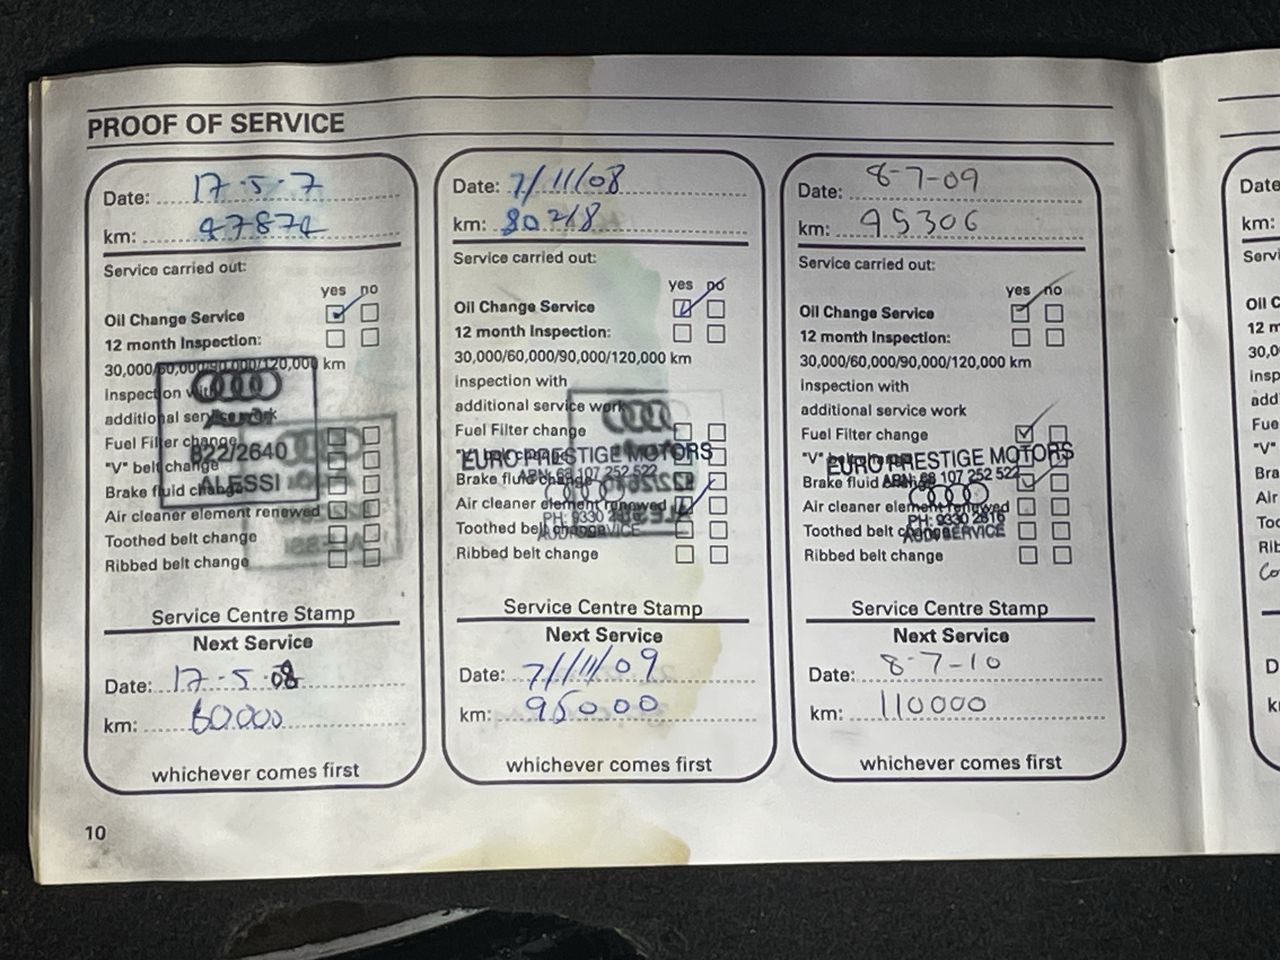 PROOF OF SERVICE
Date: 17-5-7
km: 47874
Service carried out:
yes no
Oil Change Service
12 month Inspection:
30,000/60,000/90,000/120,000 km
Inspection with
additional service work
Fuel Filter change
"V" belt change
Brake fluid change
Air cleaner element renewed
Toothed belt change
Ribbed belt change
Audi
822/2640
ALESSI
Service Centre Stamp
Next Service
Date: 17-5-08
km: 60.000
whichever comes first
Date: 7/11/08
km: 80218
Service carried out:
yes no
Oil Change Service
12 month Inspection:
30,000/60,000/90,000/120,000 km
inspection with
additional service work
Fuel Filter change
"V" belt change
Brake fluid change
Air cleaner element renewed
Toothed belt change
Ribbed belt change
EURO PRESTIGE MOTORS
ABN: 68 107 252 522
PH: 9330 2816
AUDI SERVICE
Service Centre Stamp
Next Service
Date: 7/11/09
km: 95000
whichever comes first
Date: 8-7-09
km: 95306
Service carried out:
yes no
Oil Change Service
12 month Inspection:
30,000/60,000/90,000/120,000 km
inspection with
additional service work
Fuel Filter change
"V" belt change
Brake fluid change
Air cleaner element renewed
Toothed belt change
Ribbed belt change
EURO PRESTIGE MOTORS
ABN: 68 107 252 522
PH: 9330 2816
AUDI SERVICE
Service Centre Stamp
Next Service
Date: 8-7-10
km: 110000
whichever comes first
10
Date
km: